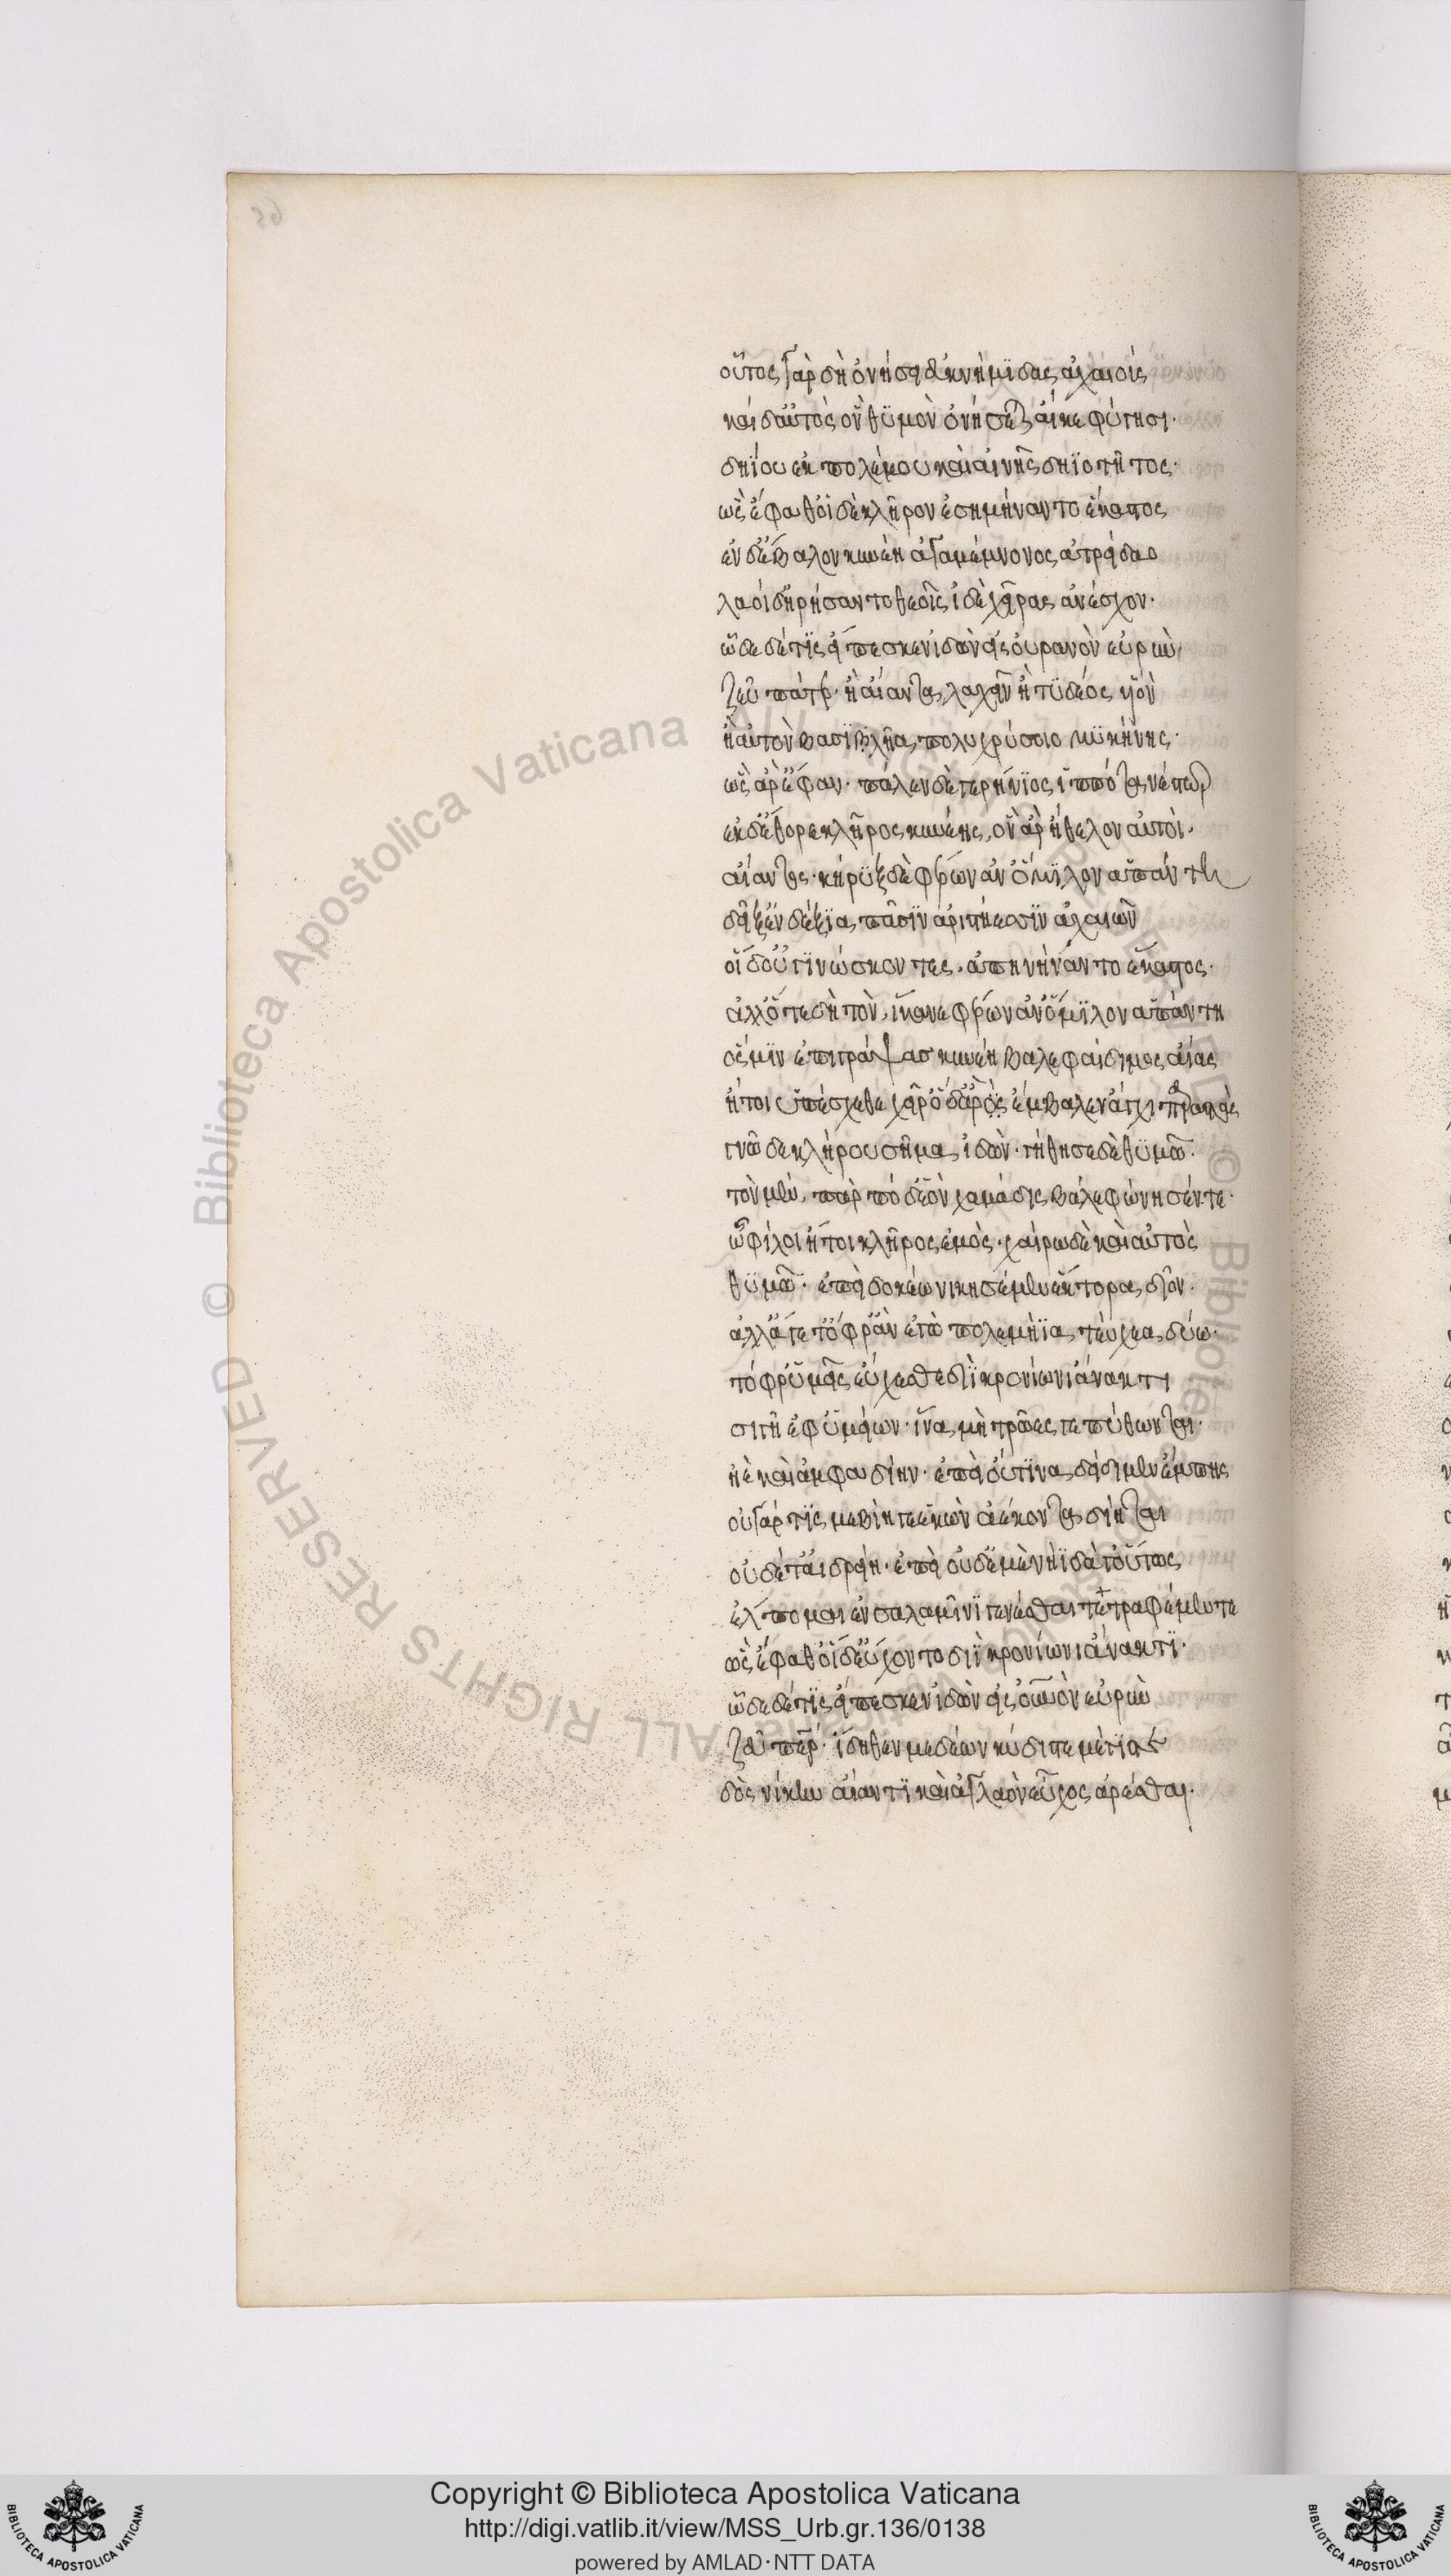 οὗτος γὰρ δὴ ὀνήσει ἐυκνήμϊδας ἀχαιούς
καί δ' αὐτὸς ὃν θϋμὸν ὀνήσεται αἴ κε φύγησι·
δηΐου ἐκ πολέμου καὶ αἰνῆς δηϊοτῆτος·
ὣς ἔφαθ' οἱ δὲ κλῆρον ἐσημήναντο ἕκαστος
ἐν δ' ἔβαλον κυνέη ἀγαμέμνονος ἀτρείδαο
λαοὶ δ' ἠρήσαντο θεοῖς ἰδὲ χεῖρας ἀνέσχον·
ὧδε δέ τϊς εἴπεσκεν ἰδὼν εἰς οὐρανὸν εὐρϋν
ζεῦ πάτερ· ἢ αἴαντα λαχεῖν ἢ τϋδέος υἱόν
ἢ αὐτὸν βασϊλῆα πολυχρύσοιο μϋκήνης·
ὣς ἄρ' ἔφαν· πάλεν δὲ γερήνϊος ἱππότα νέστωρ
ἐκ δ' ἔθορε κλῆρος κυνέης, ὃν ἄρ' ἤθελον αὐτοὶ·
αἴαντος· κήρϋξ δὲ φέρων ἀν' ὅμϊλον ἁπάντη
δεῖξ' ἐνδέξϊα πᾶσϊν ἀριστήεσσϊν ἀχαιῶν
οἱ δ' οὐ γϊνώσκοντες· ἀπηνήναντο ἕκαστος·
ἀλλ' ὅτε δὴ τὸν, ἵκανε φέρων ἀν' ὅμϊλον ἁπάντη
ὅς μϊν ἐπιγράψας κυνέη βάλε φαίδιμος αἴας
ἤτοι ὑπέσχεθε χεῖρ' ὁ δ' ἄρ' ὃς ἔμβαλεν ἄγχι παραστάς
γνῶ δε κλήρου σῆμα ἰδών· γήθησε δὲ θϋμῶ·
τὸν μὲν, πὰρ πόδ' ἑὸν χαμάδις βάλε φώνησέν τε·
ὦ φίλοι ἤτοι κλῆρος ἐμὸς· χαίρω δὲ καὶ αὐτὸς
θϋμῶ· ἐπεὶ δοκέω νικησέμεν ἕκτορα δῖον·
ἀλλ' ἄγετ' ὄφρ' ἂν ἐγὼ πολεμήϊα τεύχεα δύω·
τόφρ' ὑμεῖς εὔχεσθε διϊ κρονίωνι ἄνακτι
σιγῆ ἐφ' ὑμείων· ἵνα μὴ τρῶές γε πύθωνται·
ἠὲ καὶ ἀμφαδίην· ἐπεὶ οὔτϊνα δείδιμεν ἔμπης
οὐ γάρ τϊς με βίη γε ἑκὼν ἀέκοντα δίηται
οὐδέ τ' ἀϊδρείη· ἐπεὶ οὐδ' ἐμὲ νήϊδά γ' οὕτως
ἔλπομαι ἐν σαλαμῖνϊ γενέσθαι τε τραφέμεν τε
ὣς ἔφαθ' οἱ δ' εὔχοντο διϊ κρονίωνι ἄνακτϊ·
ὧδε δέ τϊς εἴπεσκεν ἰδὼν εἰς οὐνὸν εὐρϋν
ζεῦ περ· ἴδηθεν μεδέων κύδιστε μέγϊστε
δὸς νίκην αἴαντϊ καὶ ἀγλαὸν εὖχος ἀρέσθαι·
Copyright © Biblioteca Apostolica Vaticana
http://digi.vatlib.it/view/MSS_Urb.gr.136/0138
powered by AMLAD·NTT DATA